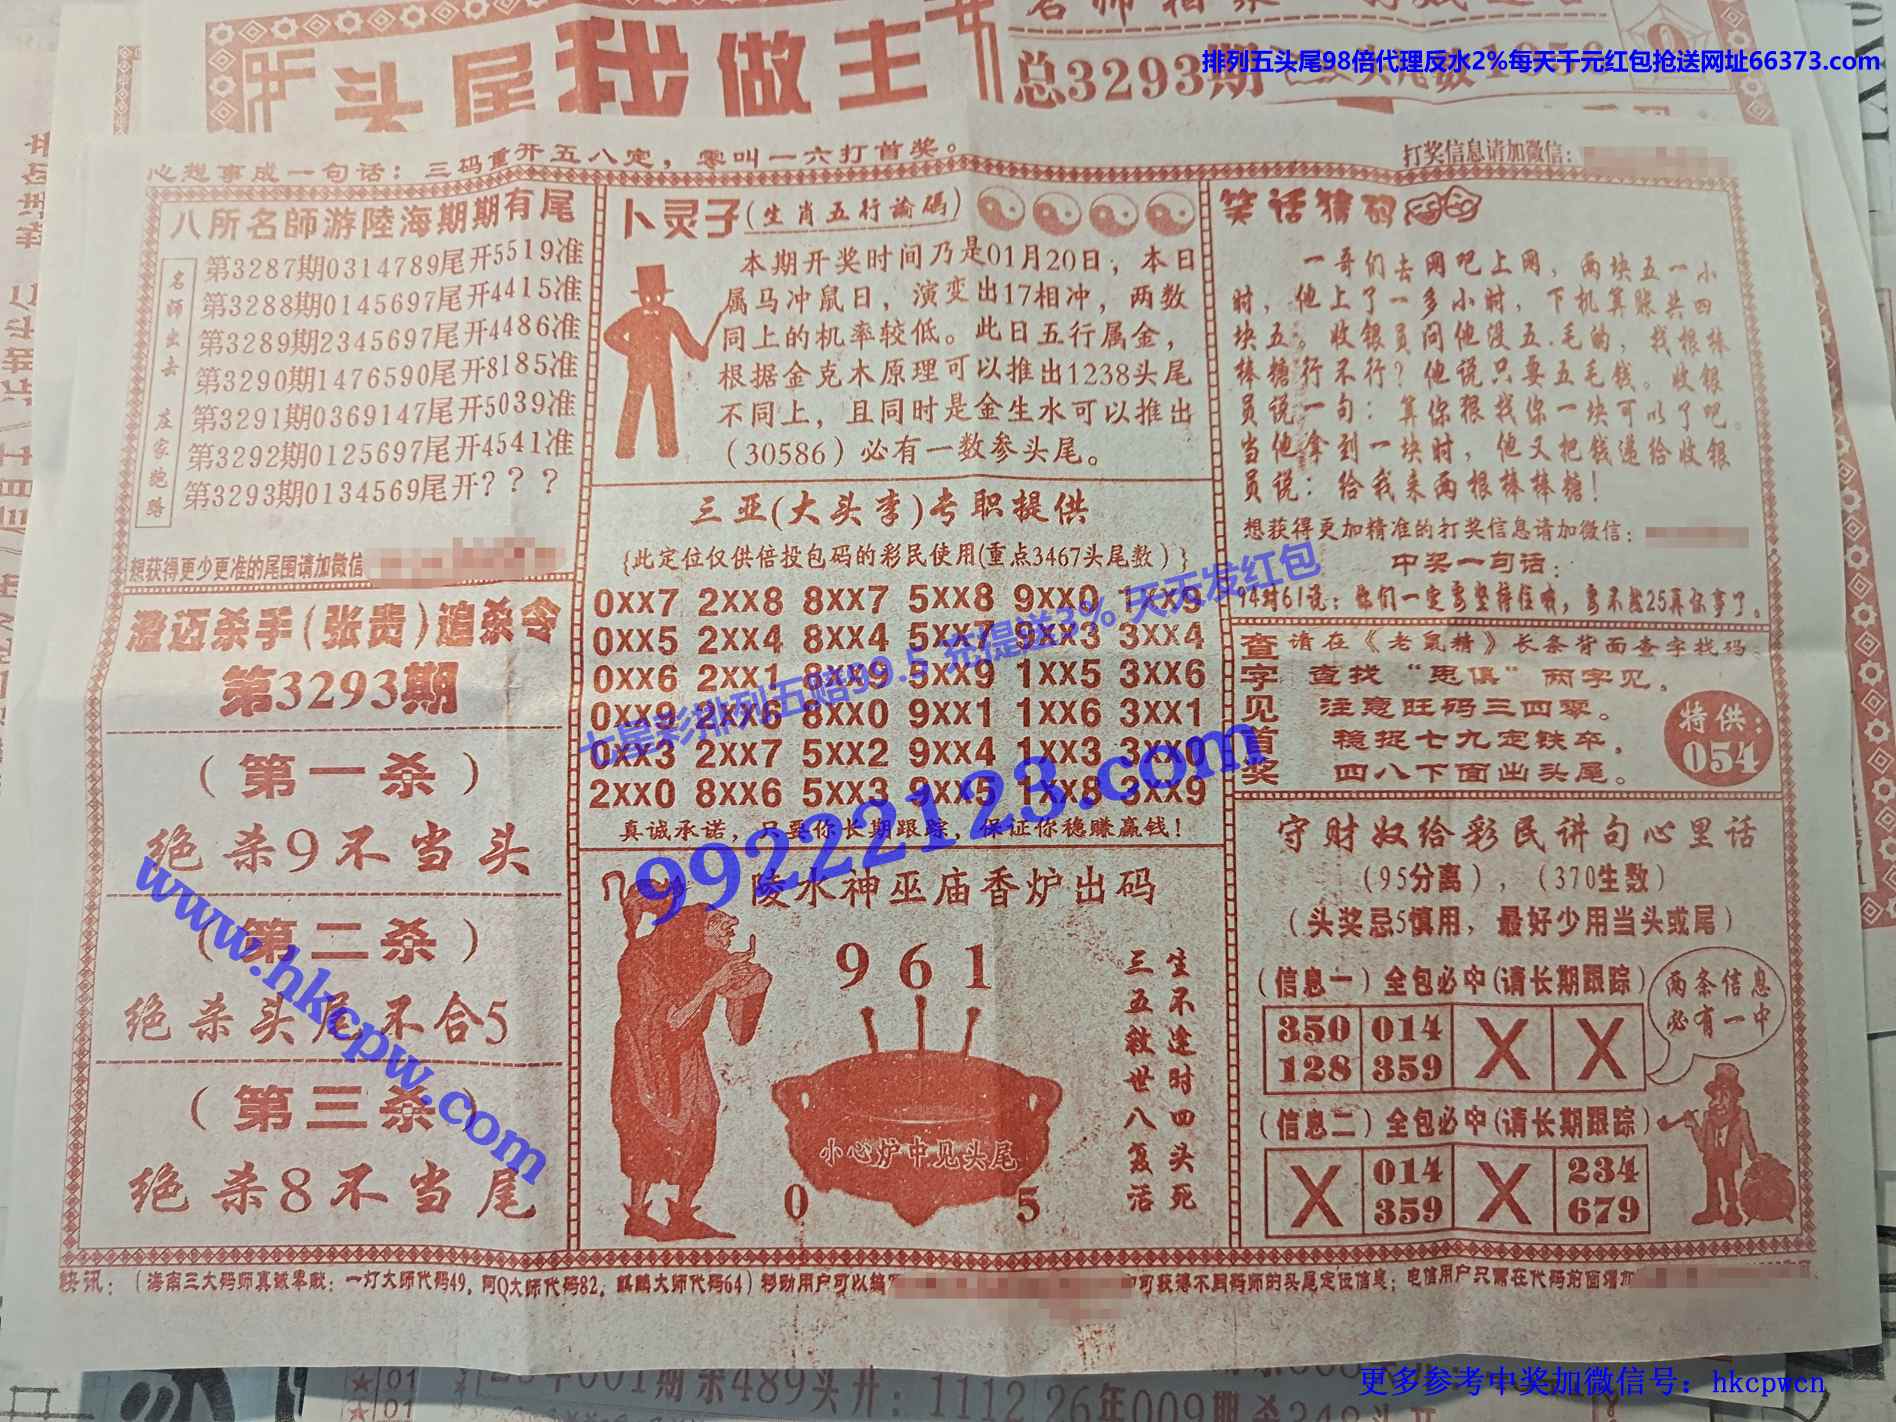 头尾我做主
总3293期
排列五头尾98倍代理反水2%每天千元红包抢送网址66373.com
心想事成一句话：三码重开五八定，零叫一六打首奖。
打奖信息请加微信：
八所名師游陸海期期有尾
名師出去 庄家跑路
第3287期0314789尾开5519准
第3288期0145697尾开4415准
第3289期2345697尾开4486准
第3290期1476590尾开8185准
第3291期0369147尾开5039准
第3292期0125697尾开4541准
第3293期0134569尾开？？？
想获得更少更准的尾围请加微信
澄迈杀手(张贵)追杀令
第3293期
（第一杀）
绝杀9不当头
（第二杀）
绝杀头尾不合5
（第三杀）
绝杀8不当尾
卜灵子(生肖五行論碼)
本期开奖时间乃是01月20日；本日
属马冲鼠日，演变出17相冲，两数
同上的机率较低。此日五行属金，
根据金克木原理可以推出1238头尾
不同上，且同时是金生水可以推出
（30586）必有一数参头尾。
三亚(大头李)专职提供
{此定位仅供倍投包码的彩民使用(重点3467头尾数）}
0xx7 2xx8 8xx7 5xx8 9xx0 1xx9
0xx5 2xx4 8xx4 5xx7 9xx3 3xx4
0xx6 2xx1 8xx9 5xx9 1xx5 3xx6
0xx9 2xx6 8xx0 9xx1 1xx6 3xx1
0xx3 2xx7 5xx2 9xx4 1xx3 3xx0
2xx0 8xx6 5xx3 9xx5 1xx8 3xx9
真诚承诺，只要你长期跟踪，保证你稳赚赢钱！
七星彩排列五赔99.5 充提送3% 天天发红包
99222123.com
www.hkcpw.com
陵水神巫庙香炉出码
961
生不逢时四头死
三五救世八复活
小心炉中见头尾
0 5
笑话猜码
一哥们去网吧上网，两块五一小
时，他上了一多小时，下机算账共四
块五。收银员问他没五.毛的，找根棒
棒糖行不行？他说只要五毛钱。收银
员说一句：算你狠找你一块可以了吧。
当他拿到一块时，他又把钱递给收银
员说：给我来两根棒棒糖！
想获得更加精准的打奖信息请加微信：
中奖一句话：
94对61说：你们一定要坚持住哦，要不然25再你事了。
查字见首奖
请在《老鼠精》长条背面查字找码
查找“思俱”两字见，
注意旺码三四零。
稳捉七九定铁卒，
四八下面出头尾。
特供：
054
守财奴给彩民讲句心里话
（95分离），（370生数）
（头奖忌5慎用，最好少用当头或尾）
（信息一）全包必中(请长期跟踪)
350 014 X X
128 359
两条信息
必有一中
（信息二）全包必中(请长期跟踪)
X 014 X 234
359 679
快讯：（海南三大码师真诚奉献：一灯大师代码49，阿Q大师代码82，麒麟大师代码64）移动用户可以编
可获得不同码师的头尾定位信息；电信用户只需在代码前面增加
01
26年009期杀
更多参考中奖加微信号：hkcpwcn